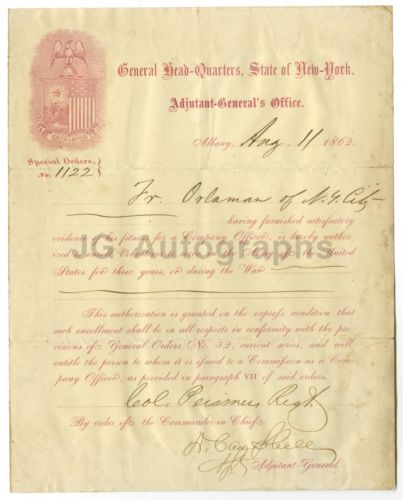 General Head-Quarters, State of New-York.
Adjutant-General's Office.
Albany, Aug. 11 1862.
Special Orders,
No. 1122
Fr. Orlaman of N.Y. City
having furnished satisfactory
evidence of his fitness for a Company Officer, is hereby author
ized to enroll Volunteers for the Army of the United
States for three years, or during the War
JG Autographs
This authorization is granted on the express condition that
such enrollment shall be in all respects in conformity with the pro
visions of General Orders No. 52, current series, and will
entitle the person to whom it is issued to a Commission as a Com
pany Officer, as provided in paragraph VII of said orders.
Col. Regt.
By order of the Commander-in-Chief:
Adjutant-General.